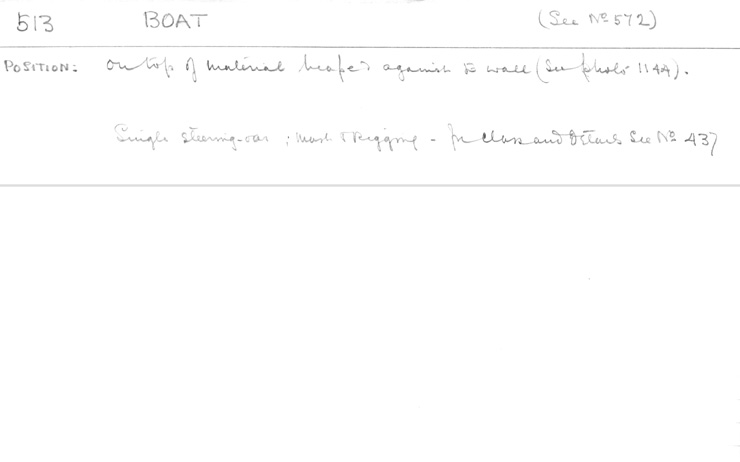 513 BOAT (See Nº 572)
POSITION: On top of material heaped against E wall (See photo 1144).
Single steering-oar; mast & Rigging - for class and details See Nº 437